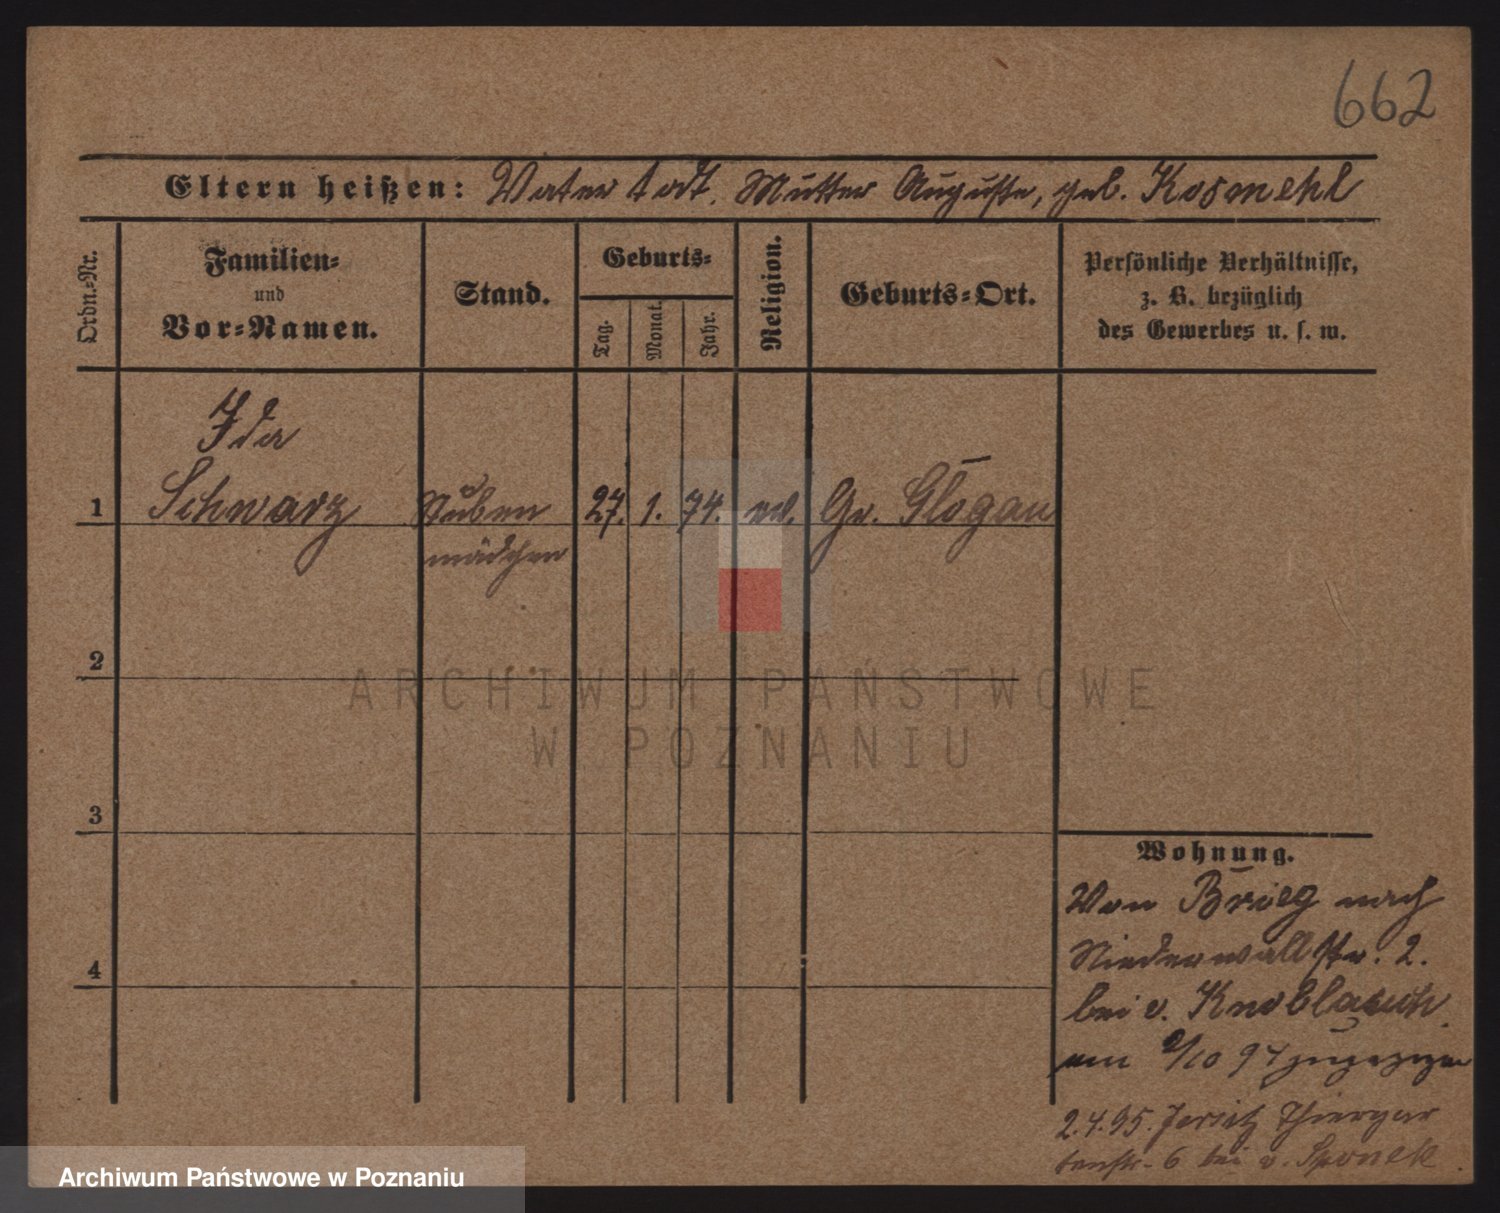 662
Eltern heißen: Vater todt. Mutter Auguste, geb. Kosmehl
Ordn.-Nr.
Familien-
und
Vor-Namen.
Stand.
Geburts-
Tag.
Monat.
Jahr.
Religion.
Geburts-Ort.
Persönliche Verhältnisse,
z. B. bezüglich
des Gewerbes u. s. w.
Ida
1 Schwarz Stuben 27. 1. 74. ev. Gr. Glogau
mädchen
2
3
4
Wohnung.
Von Brieg nach
Niederwallstr. 2.
bei v. Knoblauch
am 2/10 94 zugezogen
2.4.95. Jersitz Thiergar
tenstr. 6 bei v. Sponeck.
ARCHIWUM PAŃSTWOWE
W POZNANIU
Archiwum Państwowe w Poznaniu